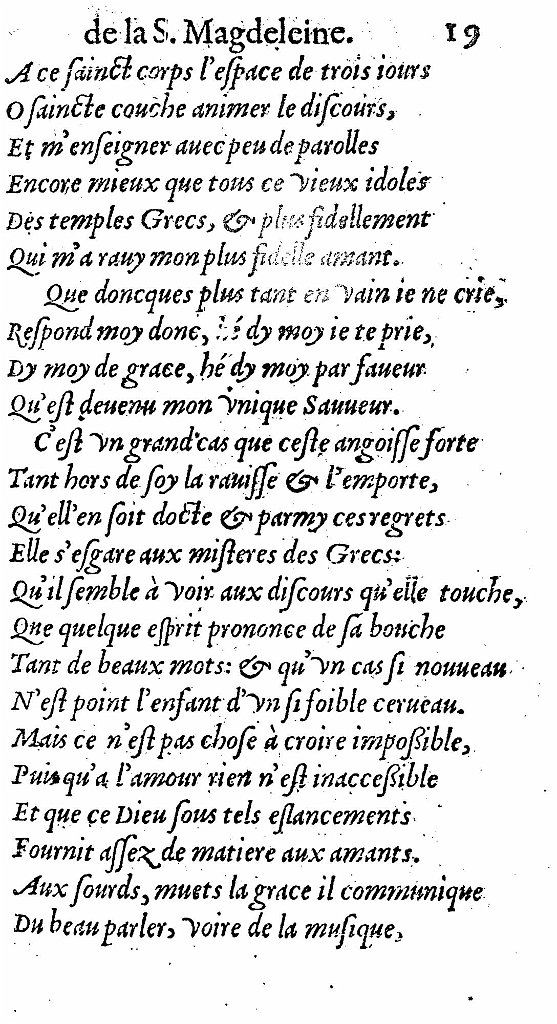 de la S. Magdeleine. 19
A ce ſainct corps l'eſpace de trois iours
O ſaincte couche animer le diſcours,
Et m'enſeigner auec peu de parolles
Encore mieux que tous ce vieux idoles
Des temples Grecs, & plus fidellement
Qui m'a rauy mon plus fidelle amant.
Que doncques plus tant en vain ie ne crie,
Reſpond moy donc, hé dy moy ie te prie,
Dy moy de grace, hé dy moy par faueur
Qu'eſt deuenu mon vnique Sauueur.
C'eſt vn grand cas que ceſte angoiſſe forte
Tant hors de ſoy la rauiſſe & l'emporte,
Qu'ell'en ſoit docte & parmy ces regrets
Elle s'eſgare aux miſteres des Grecs:
Qu'il ſemble à voir aux diſcours qu'elle touche,
Que quelque eſprit prononce de ſa bouche
Tant de beaux mots: & qu'vn cas ſi nouueau
N'eſt point l'enfant d'vn ſi foible cerueau.
Mais ce n'eſt pas choſe à croire impoßible,
Puis qu'a l'amour rien n'eſt inacceßible
Et que ce Dieu ſous tels eſlancements
Fournit aſſez de matiere aux amants.
Aux ſourds, muets la grace il communique
Du beau parler, voire de la muſique,